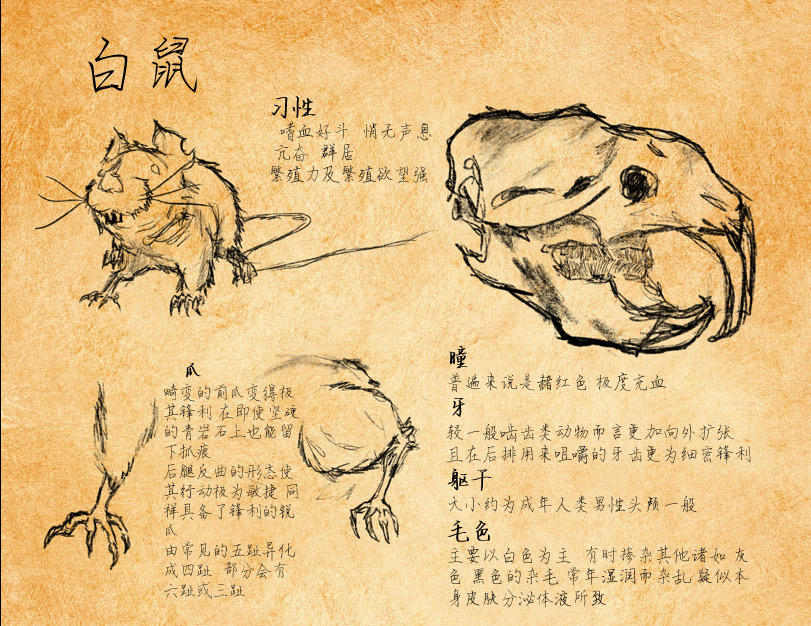 白鼠
习性
嗜血好斗 悄无声息
亢奋 群居
繁殖力及繁殖欲望强
爪
畸变的前爪变得极
其锋利 在即使坚硬
的青岩石上也能留
下抓痕
后腿反曲的形态使
其行动极为敏捷 同
样具备了锋利的锐
爪
由常见的五趾异化
成四趾 部分会有
六趾或三趾
瞳
普遍来说是赭红色 极度充血
牙
较一般啮齿类动物而言更加向外扩张
且在后排用来咀嚼的牙齿更为细密锋利
躯干
大小约为成年人类男性头颅一般
毛色
主要以白色为主 有时掺杂其他诸如 灰
色 黑色的杂毛 常年湿润而杂乱 疑似本
身皮肤分泌体液所致